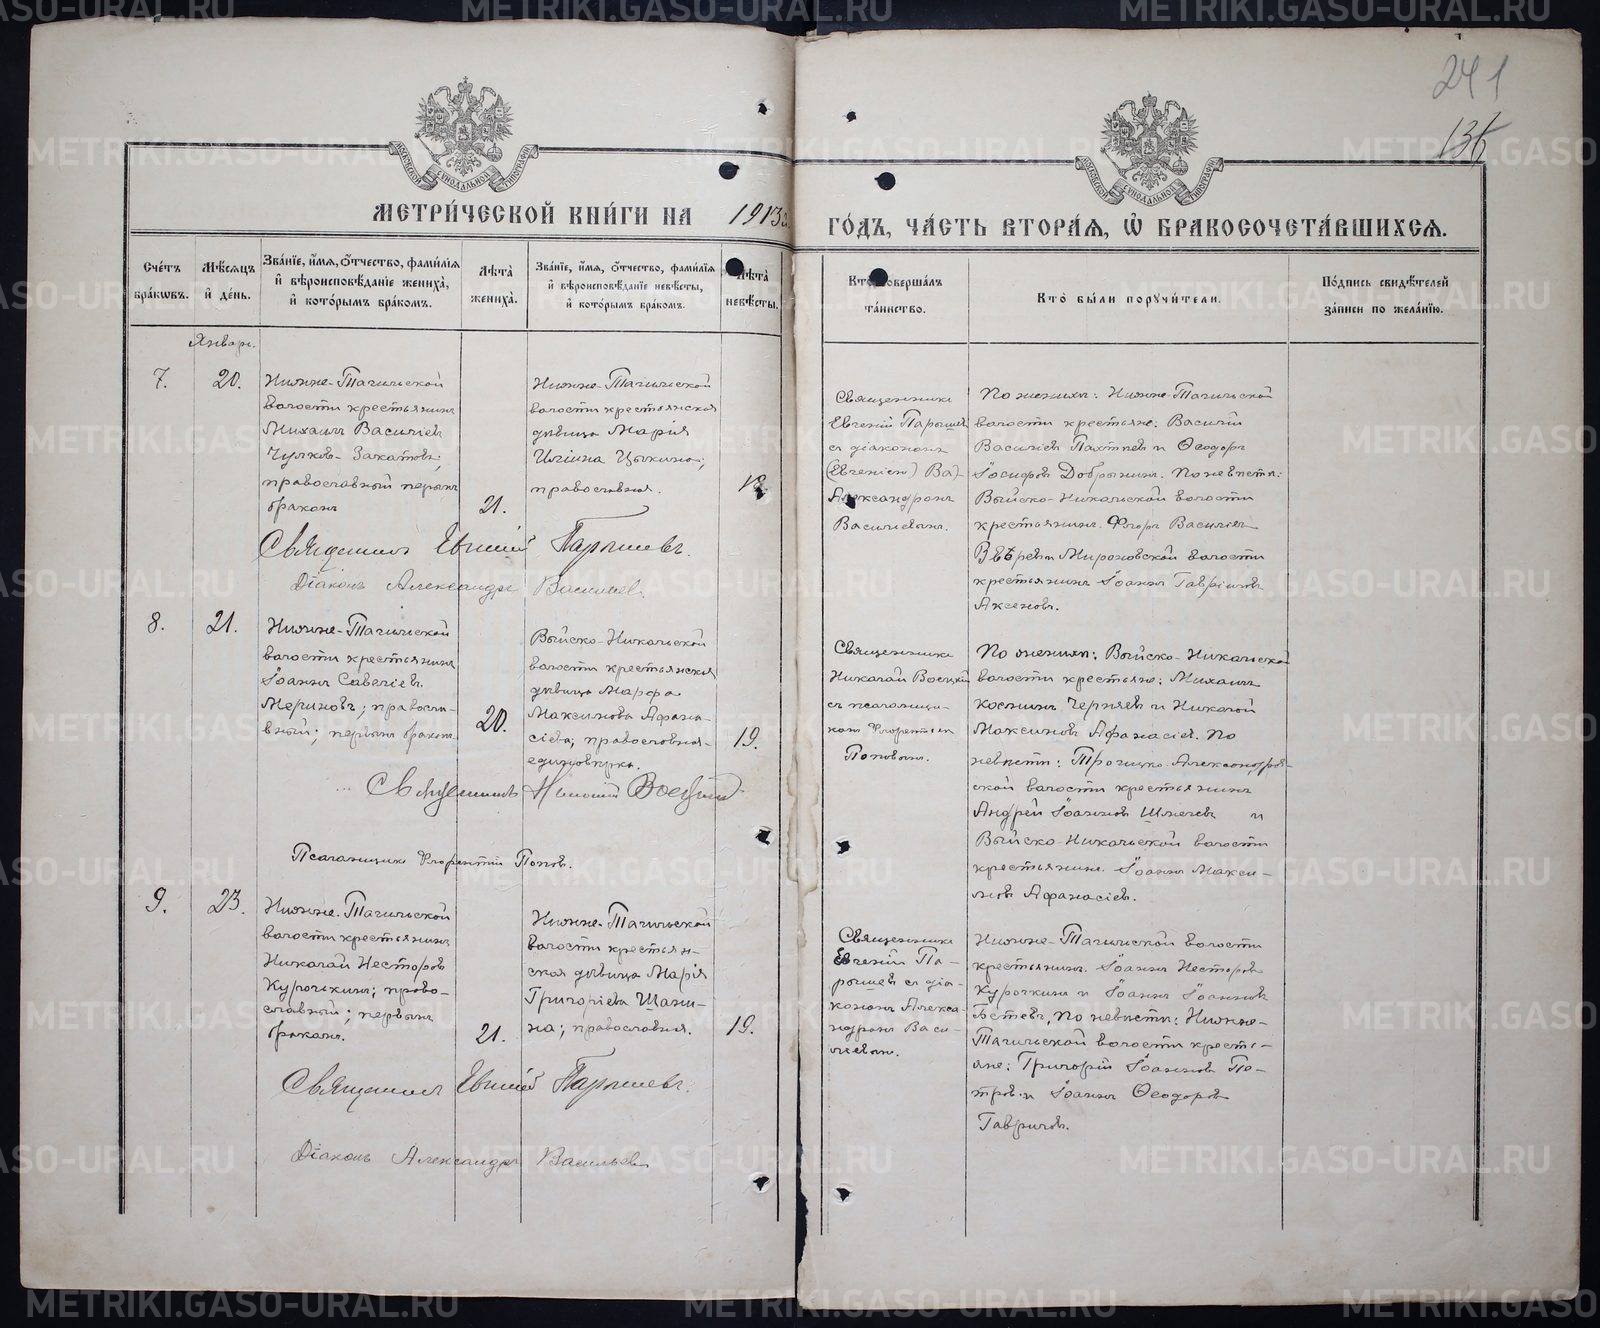 241
135
МЕТРИ́ЧЕСКОЙ КНИ́ГИ НА 1913
ГО́ДЪ, ЧА́СТЬ ВТОРА́Я, Ѡ БРАКОСОЧЕТА́ВШИХСЯ.
Сче́тъ бра́кѡвъ.
Мѣ́сяцъ и҆ де́нь.
Зва́нїе, и҆́мя, ѻ҆́тчество, фами́лїя и҆ вѣроисповѣ́данїе жениха̀, и҆ кото́рымъ бра́комъ.
Лѣ́та жениха̀.
Зва́нїе, и҆́мя, ѻ҆́тчество, фами́лїя и҆ вѣроисповѣ́данїе невѣ́сты, и҆ кото́рымъ бра́комъ.
Лѣ́та невѣ́сты.
Кто̀ соверша́лъ та́инство.
Кто̀ бы́ли поручи́тели.
По́дпись свидѣ́телей за́писи по жела́нїю.
Январь.
7.
20.
Нижне-Тагильской
волости крестьянинъ
Михаилъ Василіевъ
православный первымъ
бракомъ
21.
Нижне-Тагильской
волости крестьянская
дѣвица Марія
Иліина Цыкина;
православная.
Священникъ
Евгеній Парышев
съ діакономъ
Александромъ
Василіевымъ.
По женихѣ: Нижне-Тагильской
волости крестьяне: Василій
Василіевъ Пахтѣевъ и Ѳеодоръ
Іосифовъ Добрынинъ. По невѣстѣ:
Выйско-Никольской волости
крестьянинъ Флоръ Василіевъ
Звѣревъ и Мироновской волости
крестьянинъ Іоаннъ Гавріиловъ
Аксеновъ.
Священникъ Евгеній Парышевъ.
Діаконъ Александръ Васильев.
8.
21.
Нижне-Тагильской
волости крестьянинъ
Іоаннъ Савеліевъ
Мериновъ; правосла-
вный; первымъ бракомъ.
20.
Выйско-Никольской
волости крестьянская
дѣвица Марфа
Максимова Афана-
сіева; православная-
единовѣрка.
19.
Священникъ
Николай Воецкій
съ псаломщи-
комъ Флорентіем
Поповымъ.
По женихѣ: Выйско-Никольской
волости крестьяне: Михаилъ
Косминъ Черняевъ и Николай
Максимовъ Афанасіевъ. По
невѣстѣ: Троицко-Александров-
ской волости крестьянинъ
Андрей Іоанновъ Шмелевъ и
Выйско-Никольской волости
крестьянинъ Іоаннъ Макси-
мовъ Афанасіевъ.
Священникъ Николай Воецкій
Псаломщикъ Флорентій Попов.
9.
23.
Нижне-Тагильской
волости крестьянинъ
Николай Несторовъ
Курочкинъ; право-
славный; первымъ
бракомъ.
21.
Нижне-Тагильской
волости крестьян-
ская дѣвица Марія
Григоріева Шани-
на; православная.
19.
Священникъ
Евгеній Па-
рышев съ діа-
кономъ Алекса-
ндромъ Васи-
ліевым.
Нижне-Тагильской волости
крестьянинъ Іоаннъ Несторовъ
Курочкинъ и Іоаннъ Іоанновъ
По невѣстѣ: Нижне-
Тагильской волости крестья-
не: Григорій Іоанновъ Пе-
тровъ и Іоаннъ Ѳеодоровъ
Гавриловъ.
Священникъ Евгеній Парышевъ.
Діаконъ Александръ Васильев
METRIKI.GASO-URAL.RU